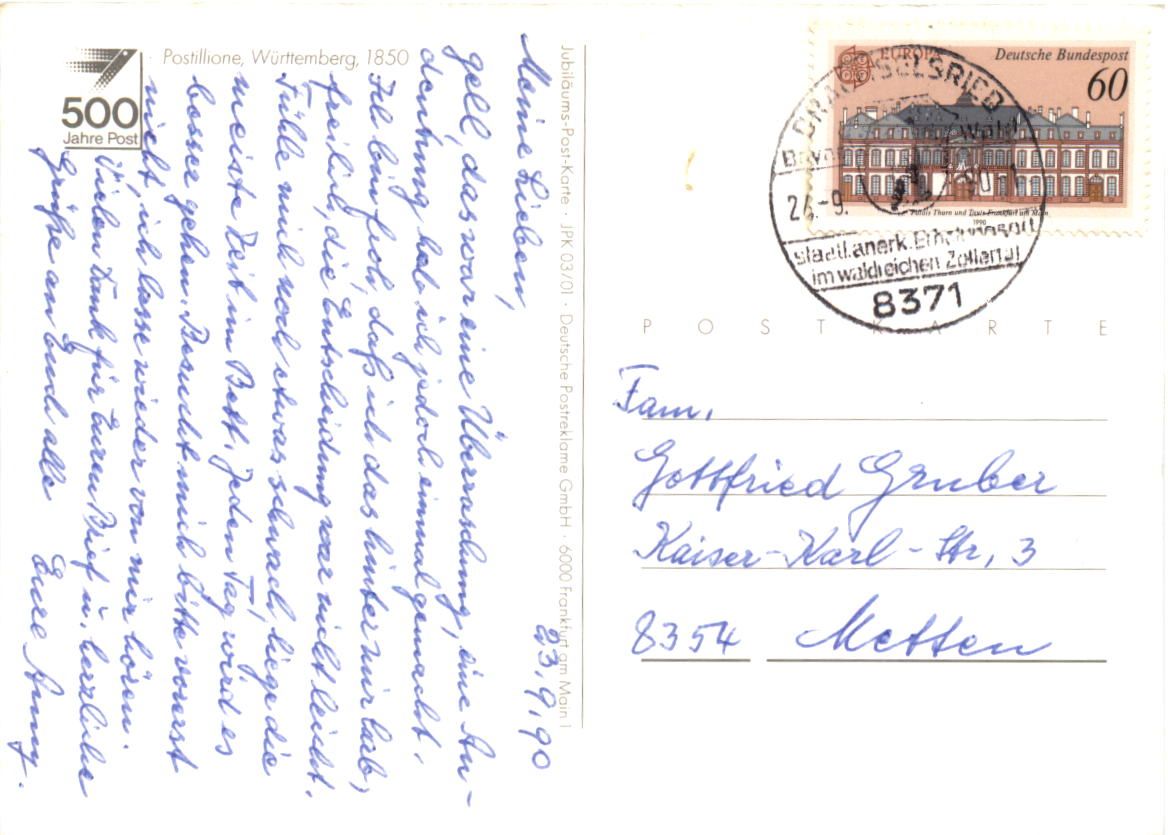 500
Jahre Post
Postillione, Württemberg, 1850
23.9.90
Meine Lieben,
gell, das war eine Überraschung, eine An-
deutung habe ich jedoch einmal gemacht.
Ich bin froh, daß ich das hinter mir hab,
freilich, die Entscheidung war nicht leicht.
Fühle mich noch etwas schwach, liege die
meiste Zeit im Bett. Jeden Tag wird es
besser gehen. Besucht mich bitte vorerst
nicht, ich lasse wieder von mir hören.
Vielen Dank für Euren Brief u. herzliche
Grüße an Euch alle
Eure Anny.
Jubiläums-Post-Karte · JPK 03/01 · Deutsche Postreklame GmbH · 6000 Frankfurt am Main 1
EUROPA
Deutsche Bundespost
60
Palais Thurn und Taxis Frankfurt am Main
1990
DRACHSELSRIED
Bayer. Wald
24.-9. 90
staatl. anerk. Erholungsort
im waldreichen Zellertal
8371
POSTKARTE
Fam.
Gottfried Gruber
Kaiser-Karl-Str. 3
8354 Metten